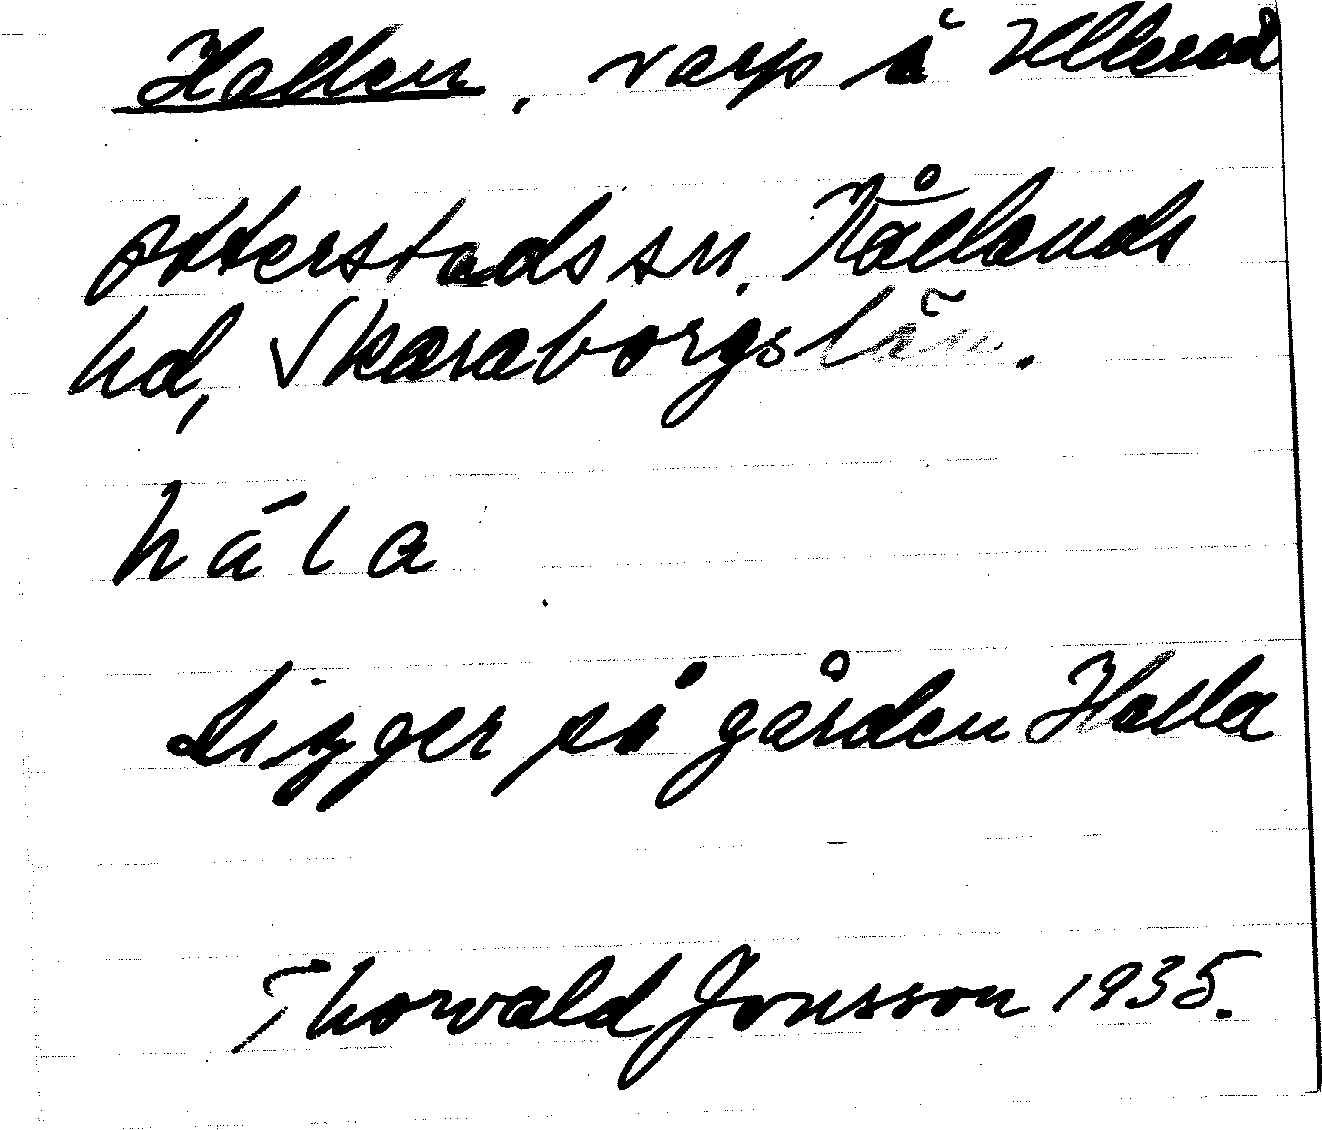 Hallen, varp å Ullerud
Otterstads sn. Kållands
hd, Skaraborgs län.
hála
Ligger på gården Halla
Thorvald Jonsson 1935.